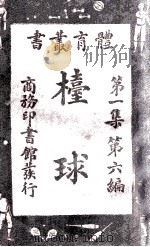 體育叢書
第一集第六編
檯球
商務印書館發行